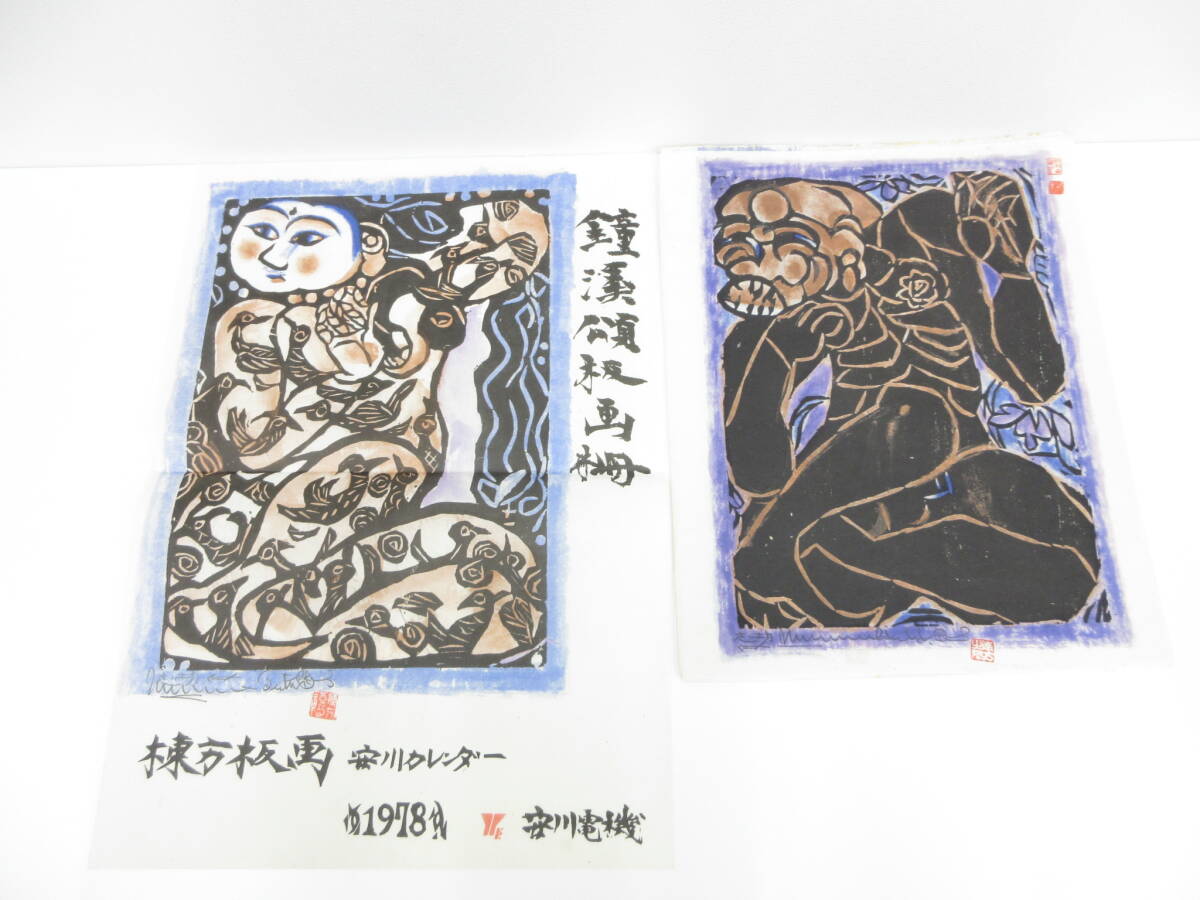 鐘溪頌板画柵
棟方板画 安川カレンダー
1978
YE 安川電機